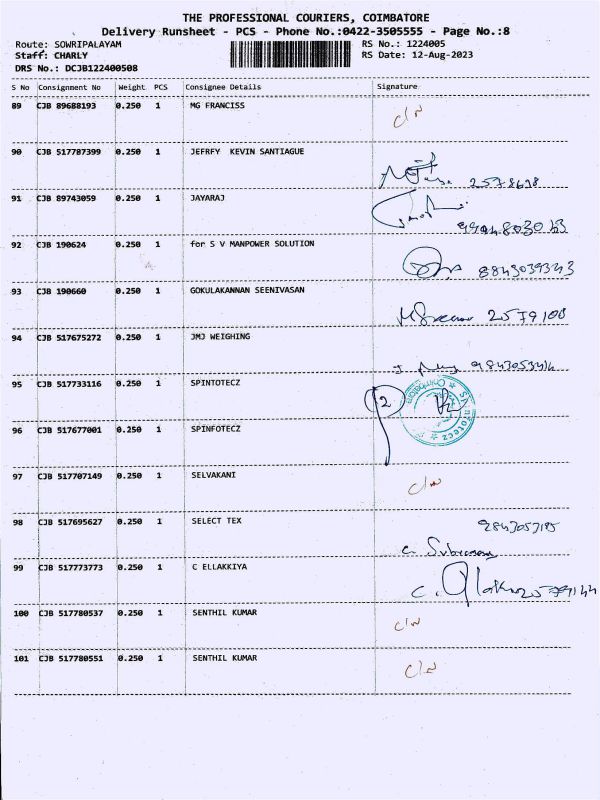 THE PROFESSIONAL COURIERS, COIMBATORE
Delivery Runsheet - PCS - Phone No.:0422-3505555 - Page No.:8
Route: SOWRIPALAYAM
RS No.: 1224005
Staff: CHARLY
RS Date: 12-Aug-2023
DRS No.: DCJB122400508
S No Consignment No Weight PCS Consignee Details Signature
89 CJB 89688193 0.250 1 MG FRANCISS
90 CJB 517787399 0.250 1 JEFRFY KEVIN SANTIAGUE
2578698
91 CJB 89743059 0.250 1 JAYARAJ
92 CJB 190624 0.250 1 for S V MANPOWER SOLUTION
8843039343
93 CJB 190660 0.250 1 GOKULAKANNAN SEENIVASAN
2579108
94 CJB 517675272 0.250 1 JMJ WEIGHING
95 CJB 517733116 0.250 1 SPINTOTECZ
2
96 CJB 517677001 0.250 1 SPINFOTECZ
97 CJB 517707149 0.250 1 SELVAKANI
98 CJB 517695627 0.250 1 SELECT TEX
99 CJB 517773773 0.250 1 C ELLAKKIYA
100 CJB 517780537 0.250 1 SENTHIL KUMAR
101 CJB 517780551 0.250 1 SENTHIL KUMAR